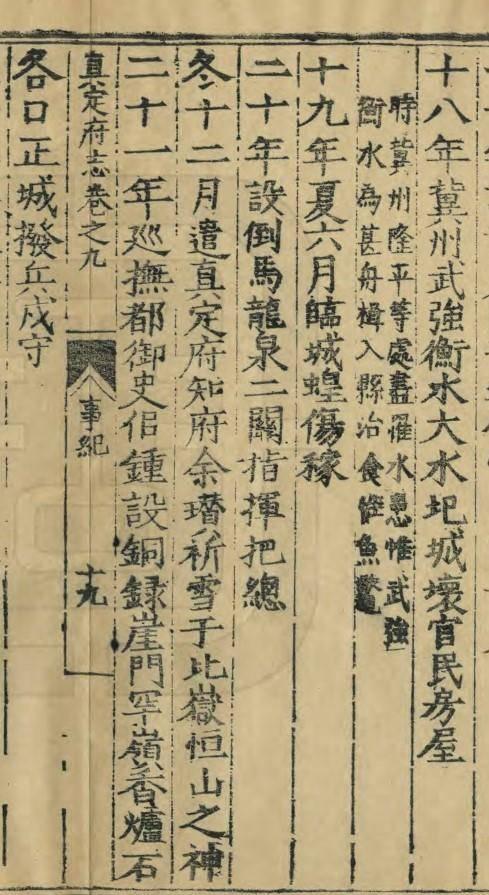 十八年冀州武強衡水大水圮城壞官民房屋
時冀州隆平等處盡罹水患惟武強
衡水為甚舟楫入縣治食惟魚鱉
十九年夏六月臨城蝗傷稼
二十年設倒馬龍泉二關指揮把總
冬十二月遣真定府知府余瓚祈雪于北嶽恒山之神
二十一年廵撫都御史侣鍾設銅録崖門罕嶺香爐石
真定府志卷之九
事紀
十九
各口正城撥兵戍守